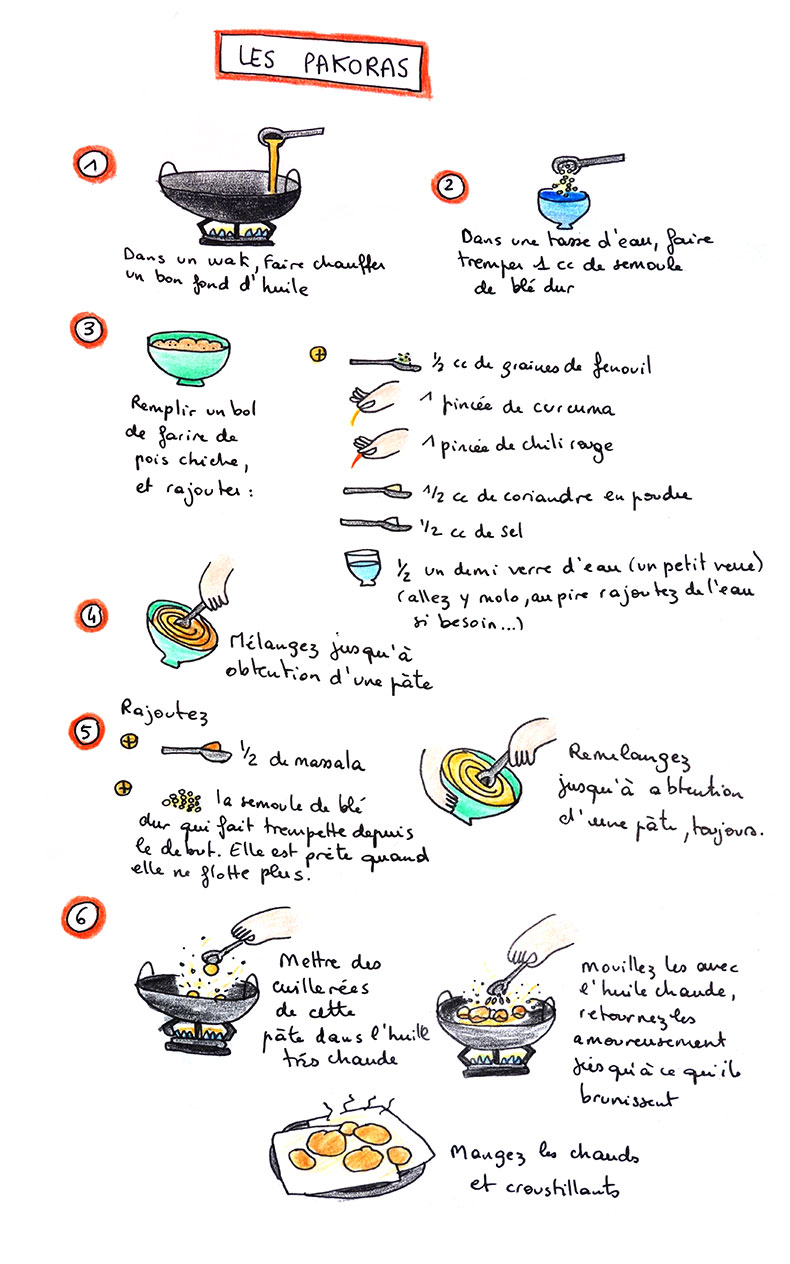 LES PAKORAS
1
Dans un wak, faire chauffer
un bon fond d'huile
2
Dans une tasse d'eau, faire
tremper 1 cc de semoule
de blé dur
3
Remplir un bol
de farine de
pois chiche,
et rajouter :
+
1/2 cc de graines de fenouil
1 pincée de curcuma
1 pincée de chili rouge
1/2 cc de coriandre en poudre
1/2 cc de sel
1/2 un demi verre d'eau (un petit verre)
(allez y molo, au pire rajoutez de l'eau
si besoin...)
4
Mélangez jusqu'à
obtention d'une pâte
5
Rajoutez
+
1/2 de massala
+
la semoule de blé
dur qui fait trempette depuis
le début. Elle est prête quand
elle ne flotte plus.
Remelangez
jusqu'à obtention
d'une pâte, toujours.
6
Mettre des
cuillerées
de cette
pâte dans l'huile
trés chaude
Mouillez les avec
l'huile chaude,
retournez les
amoureusement
jusqu'à ce qu'ils
brunissent
Mangez les chauds
et croustillants